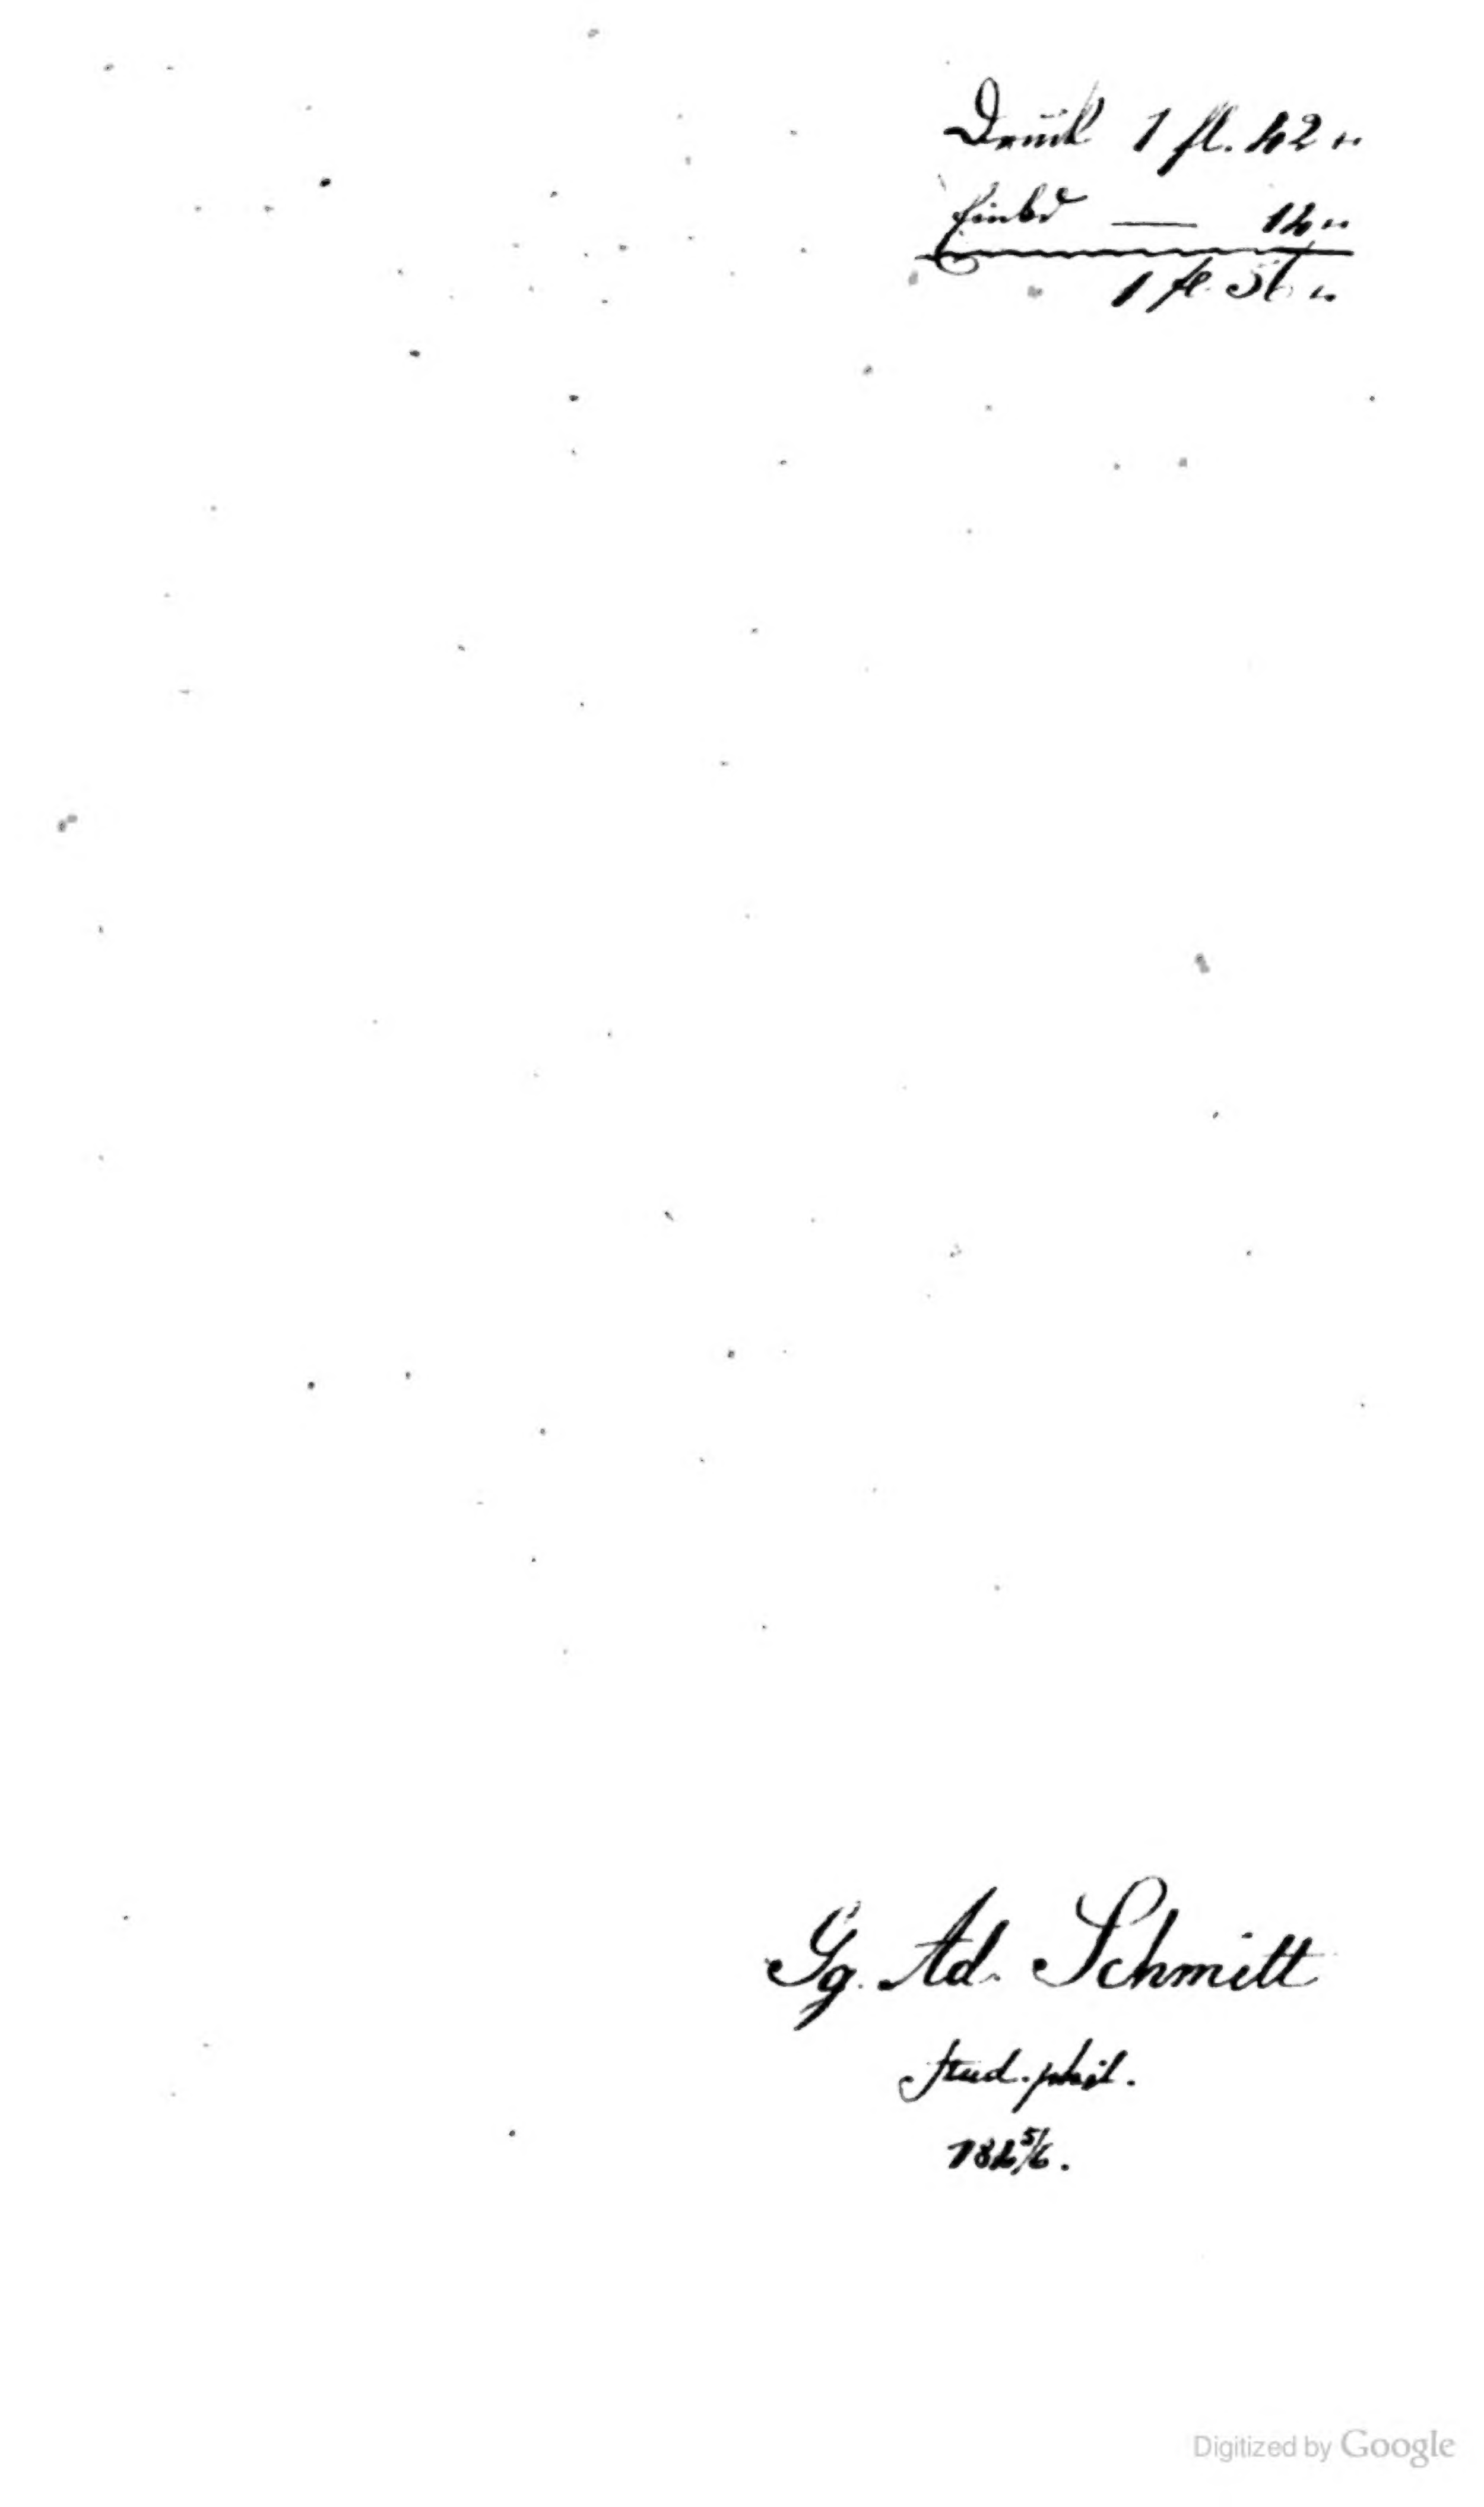 Druck 1 fl. 42 "
Einbd — 14 "
1 fl. 56 "
Gg. Ad. Schmitt
stud. phil.
184 5/6.
Digitized by Google